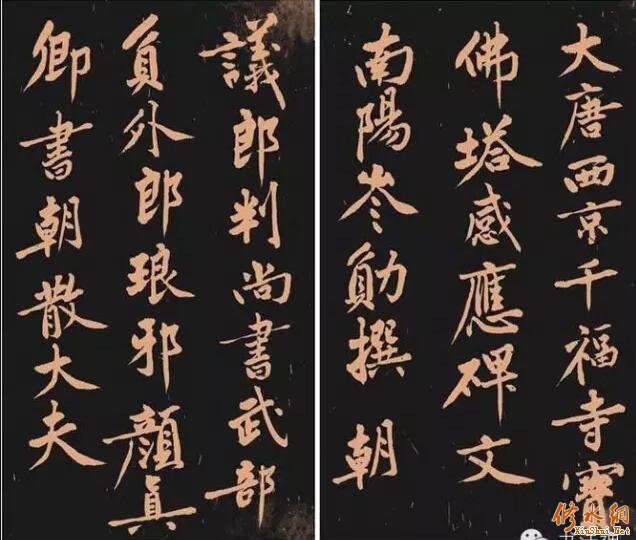 大唐西京千福寺寶
佛塔感應碑文
南陽岑勛撰 朝
議郎判尚書武部
員外郎琅邪顏真
卿書朝散大夫
修水網
XiuShui.Net